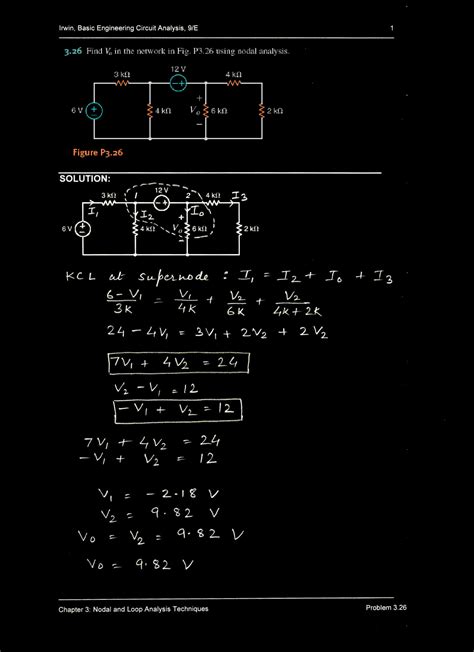 Irwin, Basic Engineering Circuit Analysis, 9/E 1
3.26 Find Vo in the network in Fig. P3.26 using nodal analysis.
12 V
3 kΩ 4 kΩ
- +
6 V + - 4 kΩ + Vo - 6 kΩ 2 kΩ
Figure P3.26
SOLUTION:
3 kΩ 1 12 V 2 4 kΩ I3
- +
I1 I2 Io
6 V + - 4 kΩ + Vo - 6 kΩ 2 kΩ
KCL at supernode : I1 = I2 + Io + I3
6 - V1 / 3K = V1 / 4K + V2 / 6K + V2 / 4K + 2K
24 - 4V1 = 3V1 + 2V2 + 2V2
7V1 + 4V2 = 24
V2 - V1 = 12
-V1 + V2 = 12
7V1 + 4V2 = 24
-V1 + V2 = 12
V1 = -2.18 V
V2 = 9.82 V
Vo = V2 = 9.82 V
Vo = 9.82 V
Chapter 3: Nodal and Loop Analysis Techniques Problem 3.26